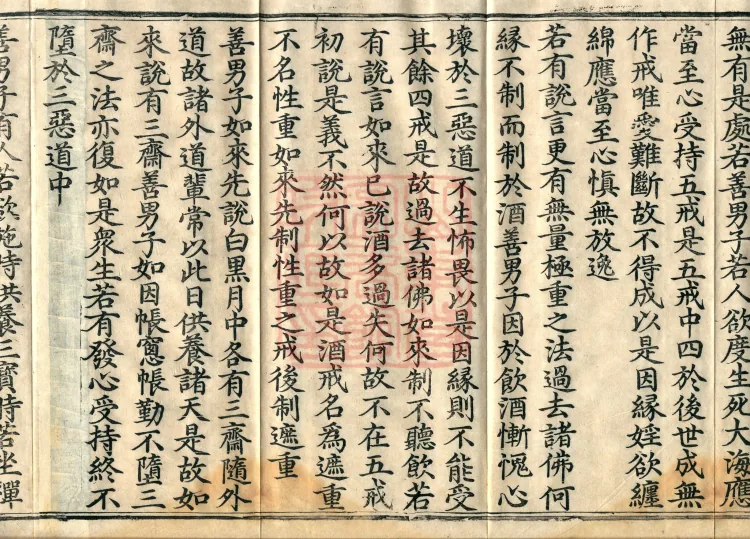 無有是處若善男子若人欲度生死大海應
當至心受持五戒是五戒中四於後世成無
作戒唯愛難斷故不得成以是因緣婬欲纏
綿應當至心慎無放逸
若有說言更有無量極重之法過去諸佛何
緣不制而制於酒善男子因於飲酒慚愧心
壞於三惡道不生怖畏以是因緣則不能受
其餘四戒是故過去諸佛如來制不聽飲若
有說言如來已說酒多過失何故不在五戒
初說是義不然何以故如是酒戒名為遮重
不名性重如來先制性重之戒後制遮重
善男子如來先說白黑月中各有三齋隨外
道故諸外道輩常以此日供養諸天是故如
來說有三齋善男子如因帳窻帳勤不墮三
齋之法亦復如是衆生若有發心受持終不
墮於三惡道中
善男子有人若欲施時供養三寶時若坐禪